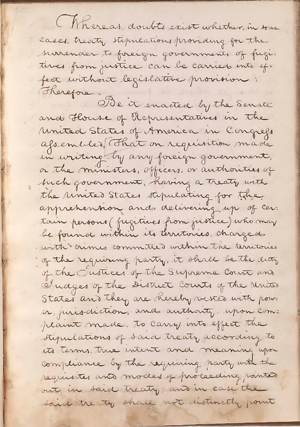 Whereas doubts exist whether, in some
cases, treaty stipulations providing for the
surrender to foreign governments of fugi-
tives from justice can be carried into ef-
fect without legislative provision:
Therefore
Be it enacted by the Senate
and House of Representatives in the
United States of America in Congress
assembled, That on requisition made
in writing by any foreign government,
or the ministers, officers, or authorities of
such government, having a treaty with
the United States stipulating for the
apprehension and delivering up of cer-
tain persons (fugitives from justice) who may
be found within its territories, charged
with crimes committed within the territories
of the requiring party, it shall be the duty
of the Justices of the Supreme Court and
Judges of the District Courts of the United
States and they are hereby vested with power
jurisdiction, and authority, upon com-
plaint made, to carry into effect the
stipulations of said treaty according to
its terms, true intent and meaning upon
compliance by the requiring party with the
requisites and modes of proceeding pointed
out in said treaty, and in case the
said treaty shall not distinctly point